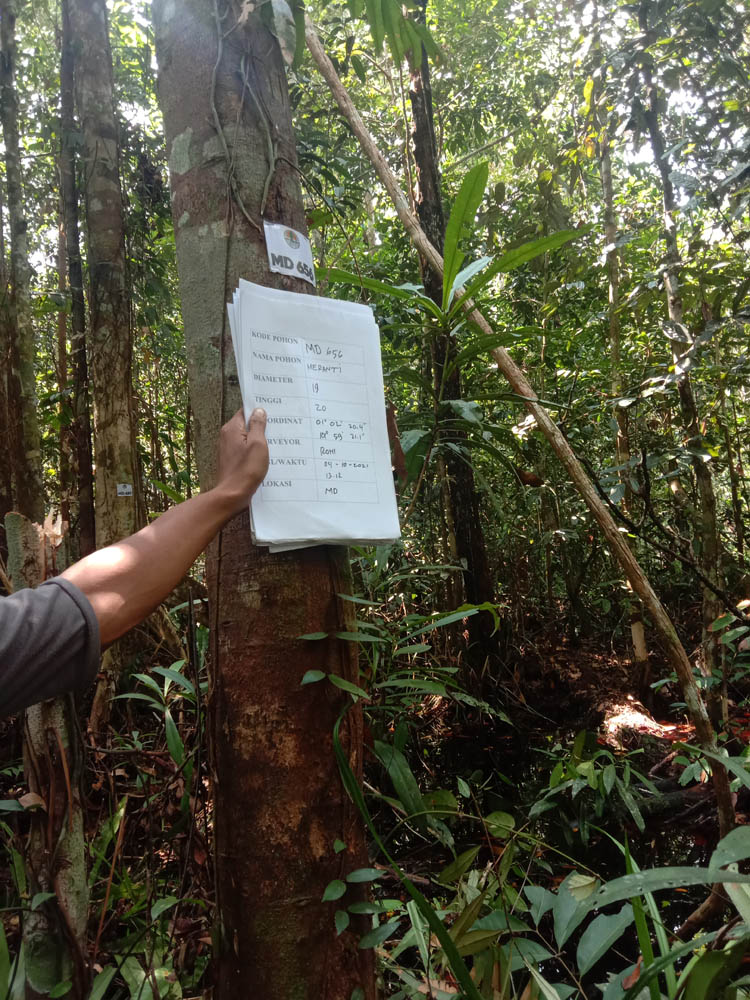 MD 656
KODE POHON MD 656
NAMA POHON MERANTI
DIAMETER 19
TINGGI 20
OORDINAT 01° 02' 20.4"
RVEYOR ROHI
L/WAKTU 04-10-2021
13.12
LOKASI MD